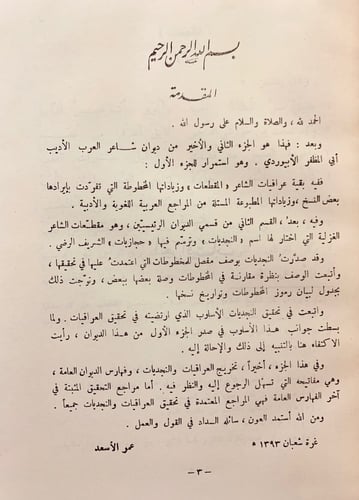 بسم الله الرحمن الرحيم
المقدمة
الحمد لله ، والصلاة والسلام على رسول الله .
وبعد : فهذا هو الجزء الثاني والأخير من ديوان شاعر العرب الأديب
أبي المظفر الأبيوردي . وهو استمرار للجزء الأول :
ففيه بقية عراقيات الشاعر «المقطعات» وزياداتها المخطوطة التي تفوّدت بإيرادها
بعض النسخ ، وزياداتها المطبوعة المستلة من المراجع العربية اللغوية والأدبية .
وفيه ، بعدُ ، القسم الثاني من قسمي الديوان الرئيسيّين ، وهو مقطّعات الشاعر
الغزلية التي اختار لها اسم «النجديات» وترسّم فيها «حجازيات» الشريف الرضي .
وقد صدّرتُ النجديات بوصف مفصل للمخطوطات التي اعتمدتُ عليها في تحقيقها ،
وأتبعت الوصف بنظرة مقارنة في المخطوطات وصلة بعضها ببعض ، وتوّجت ذلك
بجدول لبيان رموز المخطوطات وتواريخ نسخها .
واتبعت في تحقيق النجديات الأسلوب الذي ارتضيته في تحقيق العراقيات . ولما
بسطت جوانب هذا الأسلوب في صدر الجزء الأول من هذا الديوان ، رأيت
الاكتفاء هنا بالتنبيه إلى ذلك والإحالة إليه .
وفي هذا الجزء ، أخيراً ، تخريج العراقيات والنجديات ، وفهارس الديوان العامة ،
وهي مفاتيحه التي تسهّل الرجوع إليه والنظر فيه . أما مراجع التحقيق المثبتة في
آخر الفهارس العامة فهي المراجع المعتمدة في تحقيق العراقيات والنجديات جميعاً .
ومن الله أستمد العون ، سائله السداد في القول والعمل .
غرة شعبان ١٣٩٣ ه
عمر الأسعد
– ٣ –